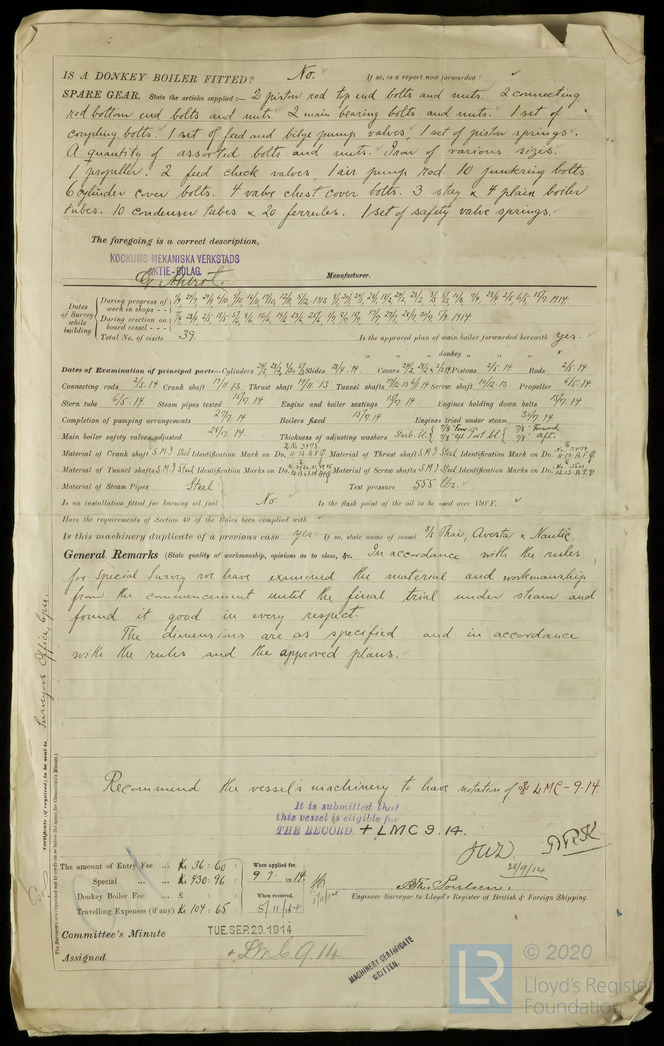 IS A DONKEY BOILER FITTED? No. If so, is a report now forwarded?
SPARE GEAR. State the articles supplied:— 2 piston rod top end bolts and nuts. 2 connecting
rod bottom end bolts and nuts. 2 main bearing bolts and nuts. 1 set of
coupling bolts. 1 set of feed and bilge pump valves. 1 set of piston springs.
A quantity of assorted bolts and nuts. Iron of various sizes.
1 propeller. 2 feed check valves. 1 air pump rod. 10 junkring bolts.
6 cylinder cover bolts. 4 valve chest cover bolts. 3 stay & 4 plain boiler
tubes. 10 condenser tubes & 20 ferrules. 1 set of safety valve springs.
The foregoing is a correct description,
KOCKUMS MEKANISKA VERKSTADS
AKTIE-BOLAG.
Manufacturer.
Dates of Survey while building
During progress of work in shops - - 1914
During erection on board vessel - - - 1914
Total No. of visits 39. Is the approved plan of main boiler forwarded herewith yes.
" " " donkey " " "
Dates of Examination of principal parts—Cylinders Slides 21/4.14 Covers Pistons 2/5.14 Rods 2/5.14
Connecting rods 2/5.14 Crank shaft 17/11.13. Thrust shaft 17/11.13 Tunnel shafts Screw shaft Propeller 6/5.14
Stern tube 6/5.14 Steam pipes tested 15/7.14 Engine and boiler seatings Engines holding down bolts 15/7.14
Completion of pumping arrangements 27/7.14 Boilers fixed 15/7.14 Engines tried under steam 30/7.14
Main boiler safety valves adjusted 28/7.14 Thickness of adjusting washers
Material of Crank shaft S.M.I Steel Identification Mark on Do. Material of Thrust shaft S.M.I Steel Identification Mark on Do.
Material of Tunnel shafts S.M.I Steel Identification Marks on Do. Material of Screw shafts S.M.I Steel Identification Marks on Do.
Material of Steam Pipes Steel Test pressure 555 lbs.
Is an installation fitted for burning oil fuel No. Is the flash point of the oil to be used over 150°F.
Have the requirements of Section 49 of the Rules been complied with
Is this machinery duplicate of a previous case yes If so, state name of vessel S/S Thai, Avesta & Nautic.
General Remarks (State quality of workmanship, opinions as to class, &c. In accordance with the rules
for Special Survey we have examined the material and workmanship
from the commencement until the final trial under steam and
found it good in every respect.
The dimensions are as specified and in accordance
with the rules and the approved plans.
Recommend the vessel's machinery to have notation of LMC-9.14.
It is submitted that
this vessel is eligible for
THE RECORD. + LMC 9.14.
28/9/14
The amount of Entry Fee .. Kr 36 : 60 :
Special ... .. Kr. 430 : 96 :
Donkey Boiler Fee ... £ : :
Travelling Expenses (if any) Kr 104 : 65 :
When applied for,
9.9.1914.
When received,
5/11/1914
Engineer Surveyor to Lloyd's Register of British & Foreign Shipping.
Committee's Minute TUE.SEP.29.1914
Assigned + LMC 9.14.
MACHINERY CERTIFICATE
WRITTEN.
Certificate (if required) to be sent to Surveyors Office,
(The Surveyors are requested not to write on or below the space for Committee's Minute.)
LR
© 2020
Lloyd's Register
Foundation